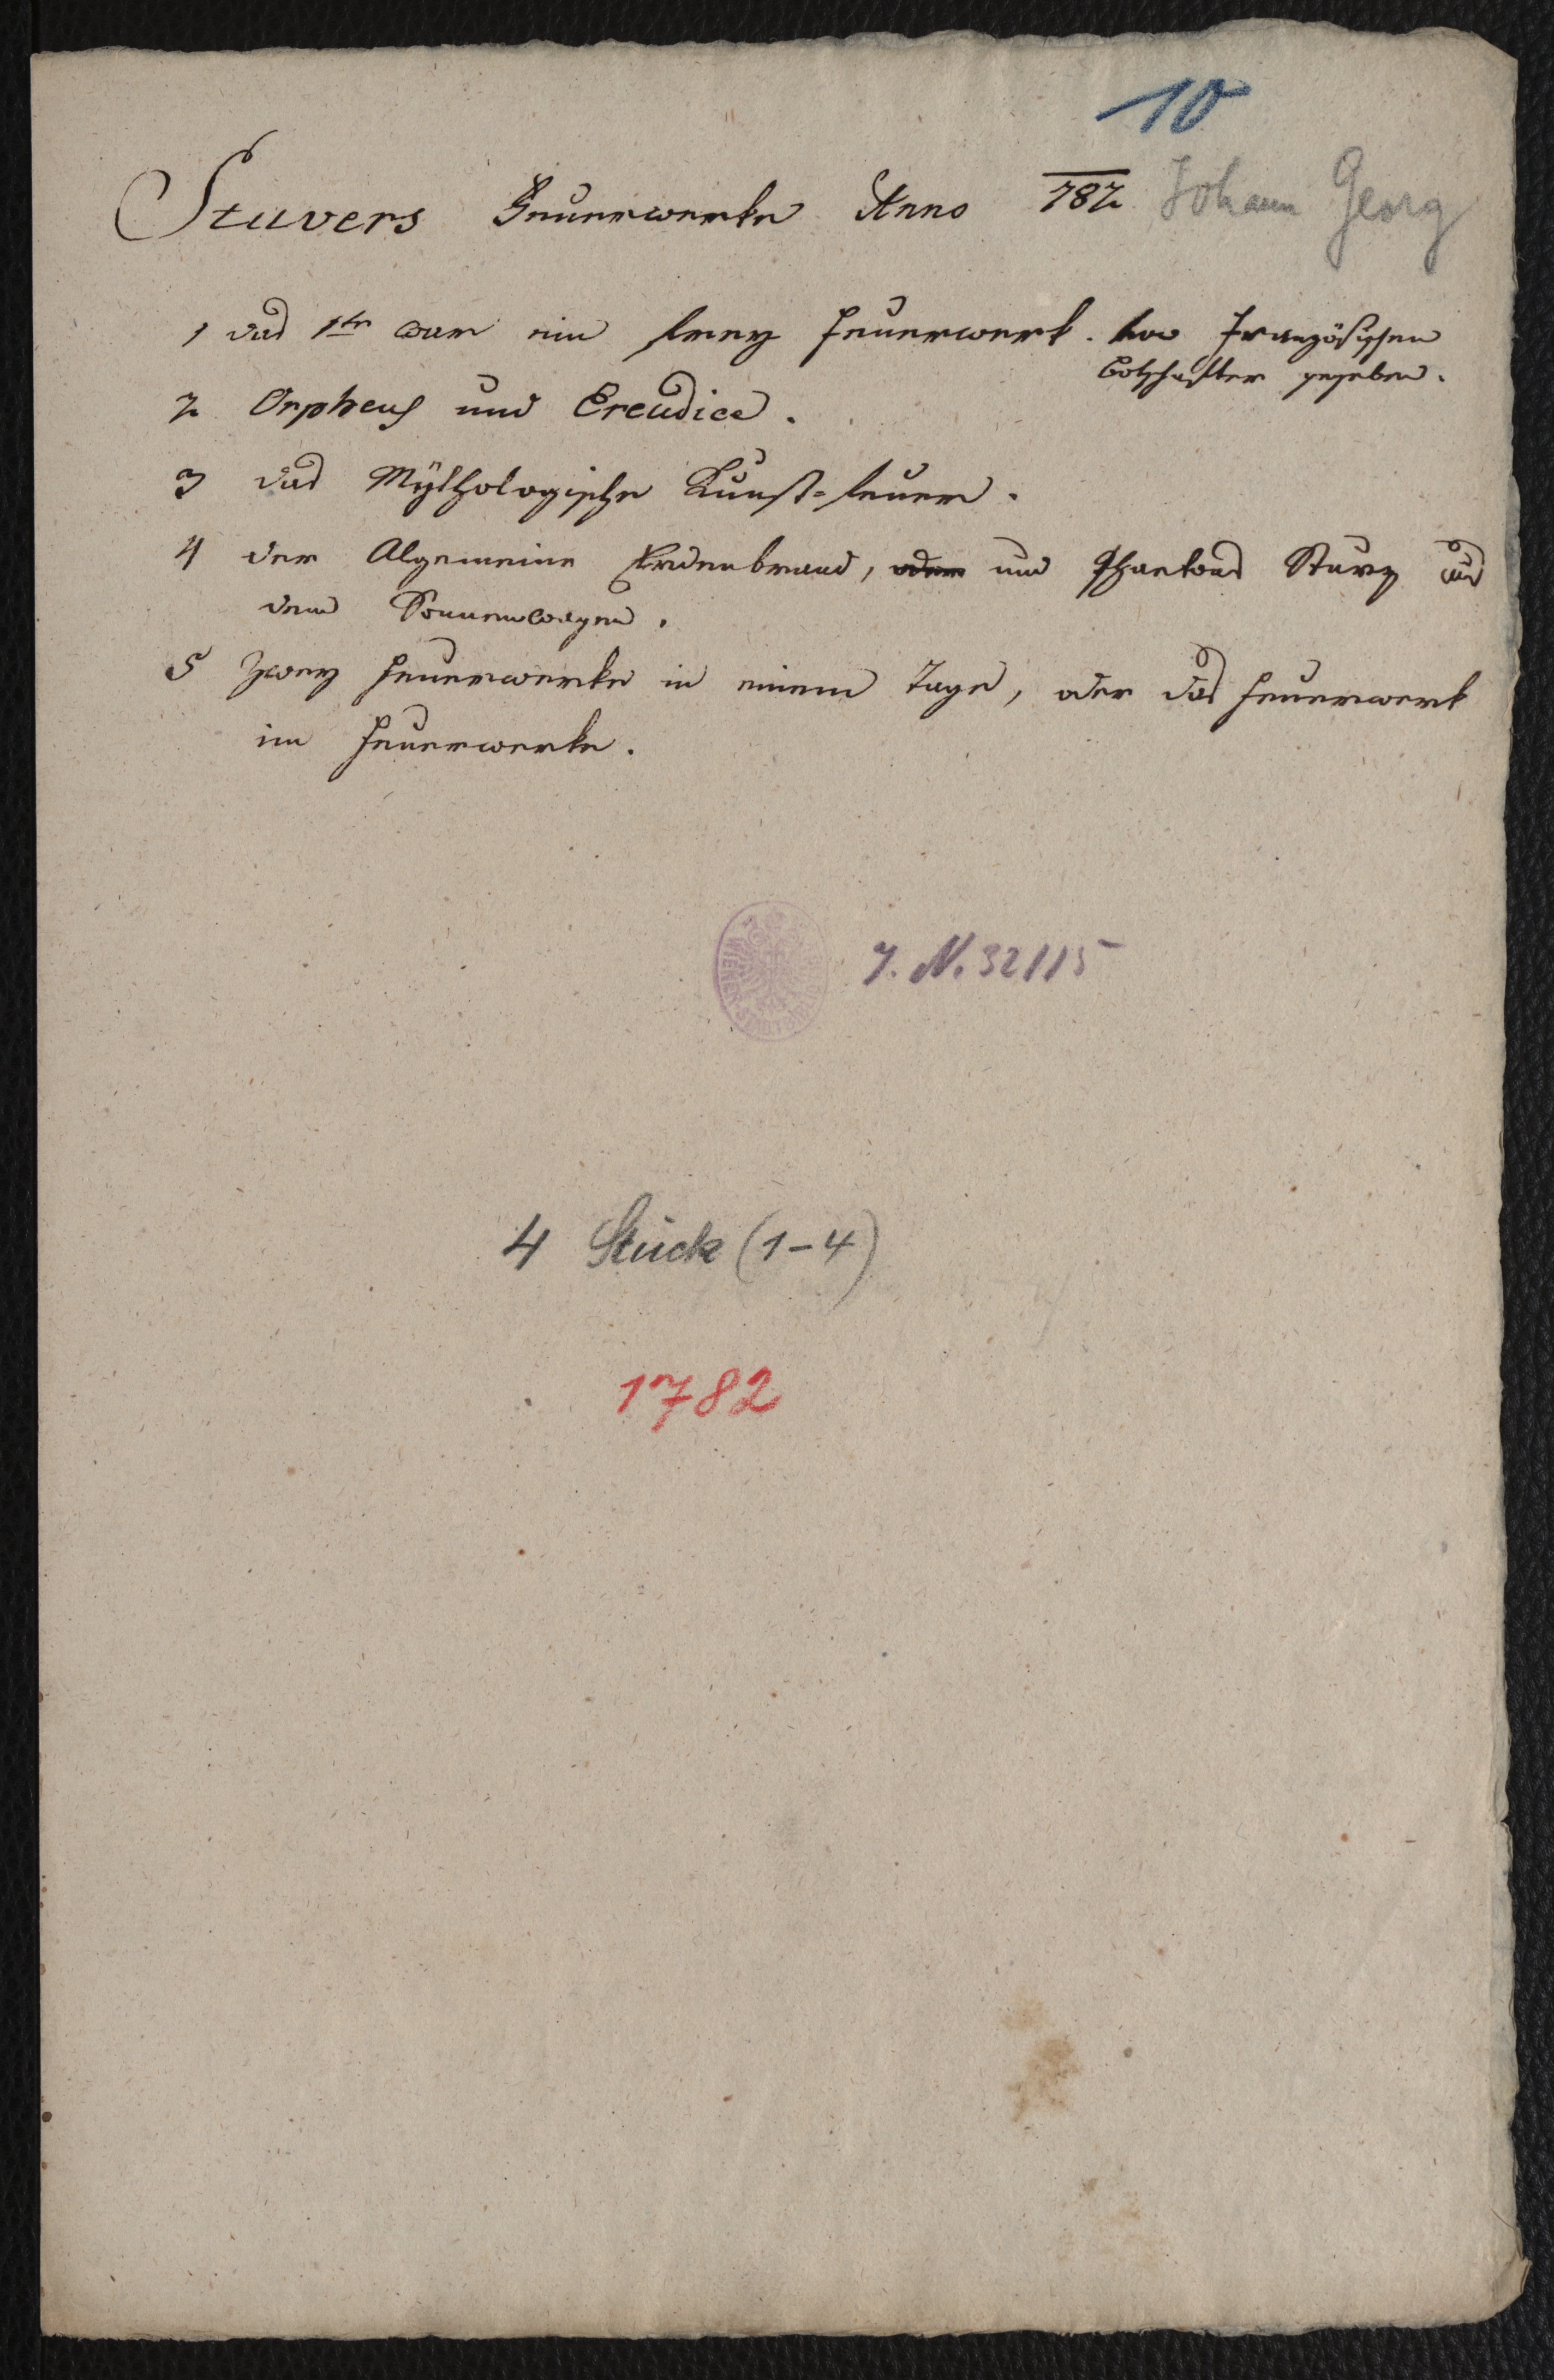 10
Stuvers Feuerwerke Anno 782 Johann Georg
1 das 1te war ein frey Feuerwerk. von Französischen
Botschafter gegeben.
2 Orpheus und Ereudice.
3 das Mÿthologische Kunst=feuer.
4 der Algemeine Erdenbrand, oder und Phaetons Sturz aus
dem Sonnenwagen.
5 Zwey Feuerwerke in einem Tage, oder das Feuerwerk
im Feuerwerke.
J. N. 32115
4 Stück (1-4)
1782